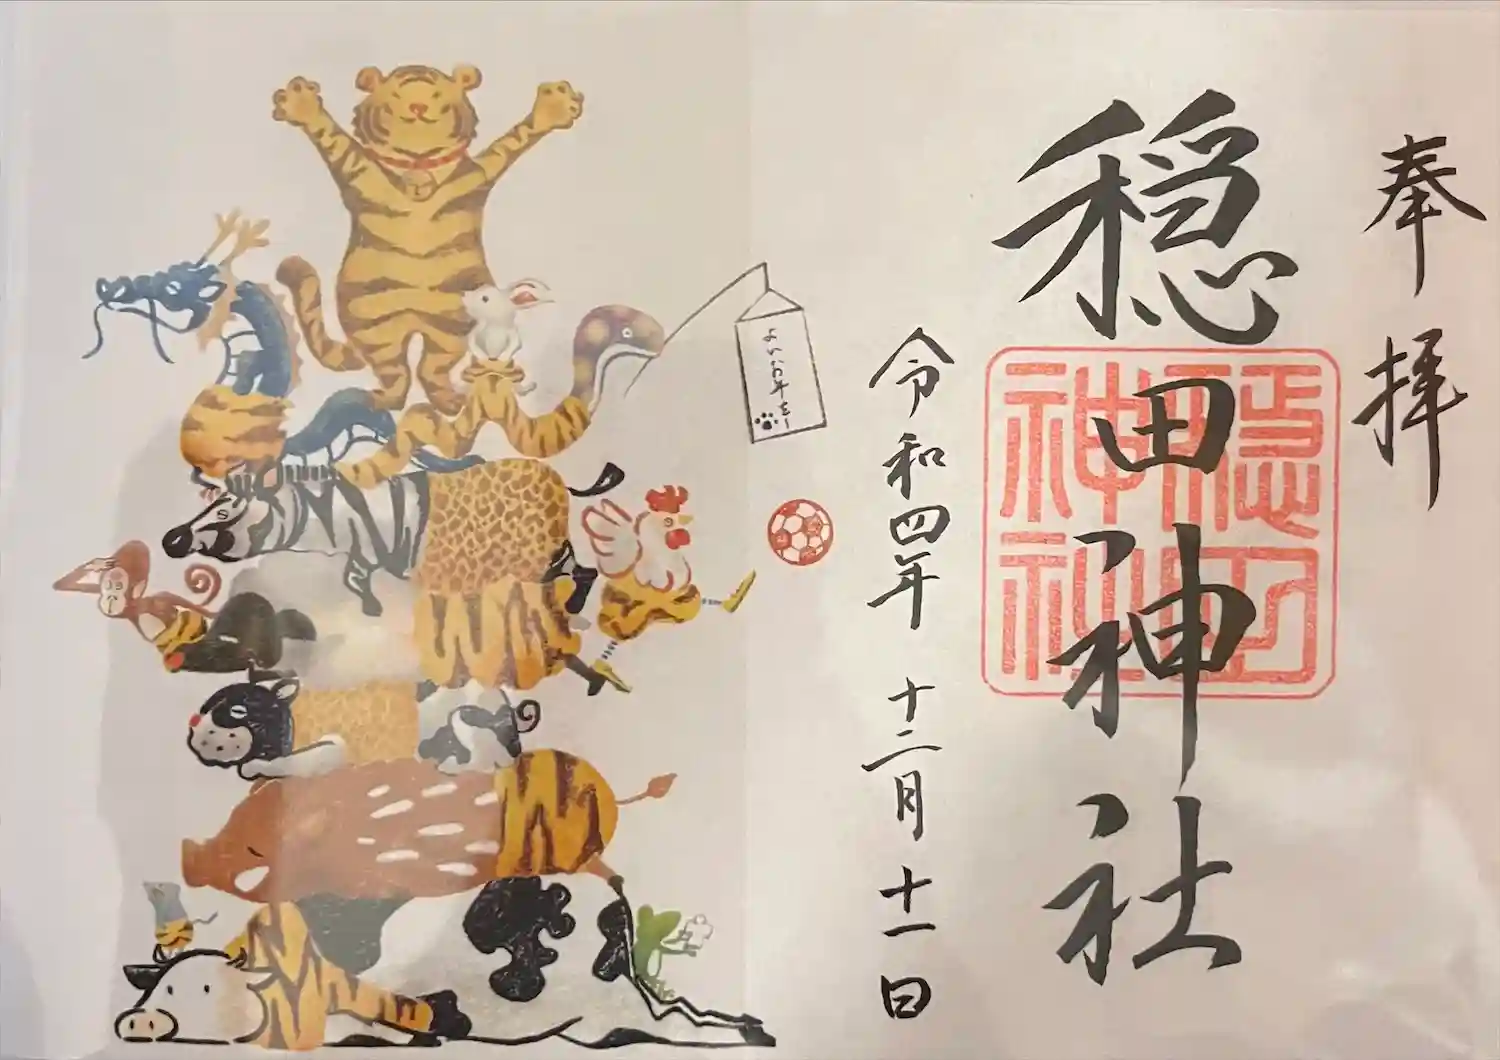 奉拝
穏田神社
穏田
神社
令和四年 十二月十一日
よいお年をー